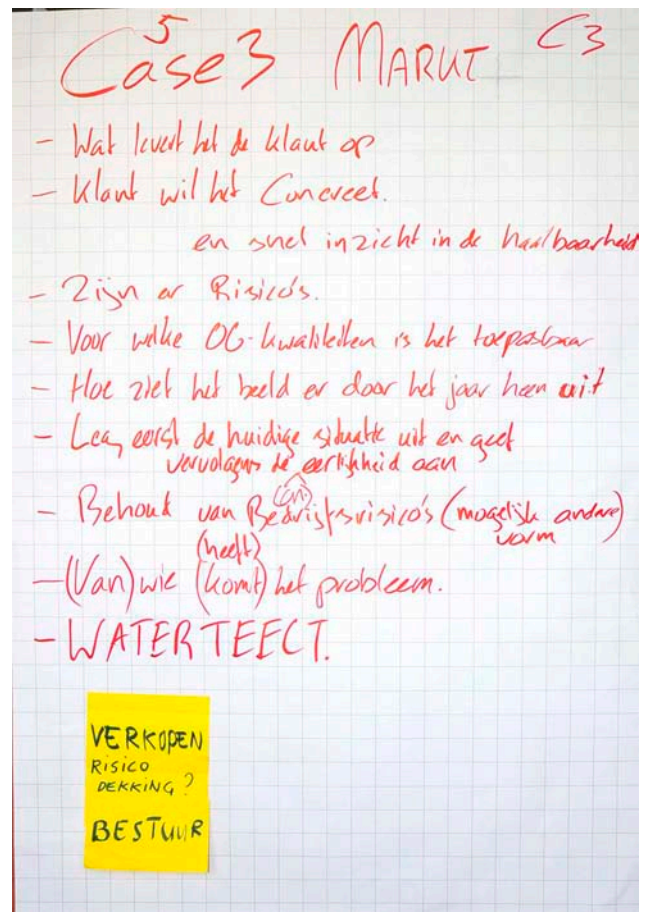 5
Case 3 MARKT C3
- Wat levert het de klant op
- Klant wil het Concreet.
en snel inzicht in de haalbaarheid
- Zijn er Risico's.
- Voor welke OG-kwaliteiten is het toepasbaar
- Hoe ziet het beeld er door het jaar heen uit
- Leg eerst de huidige situatie uit en geef
vervolgens de eerlijkheid aan
(on)
- Behoud van Bedrijfsrisico's (mogelijk andere)
vorm
(heeft)
- (Van) wie (komt) het probleem.
- WATER TEECT.
VERKOPEN
RISICO
DEKKING?
BESTUUR